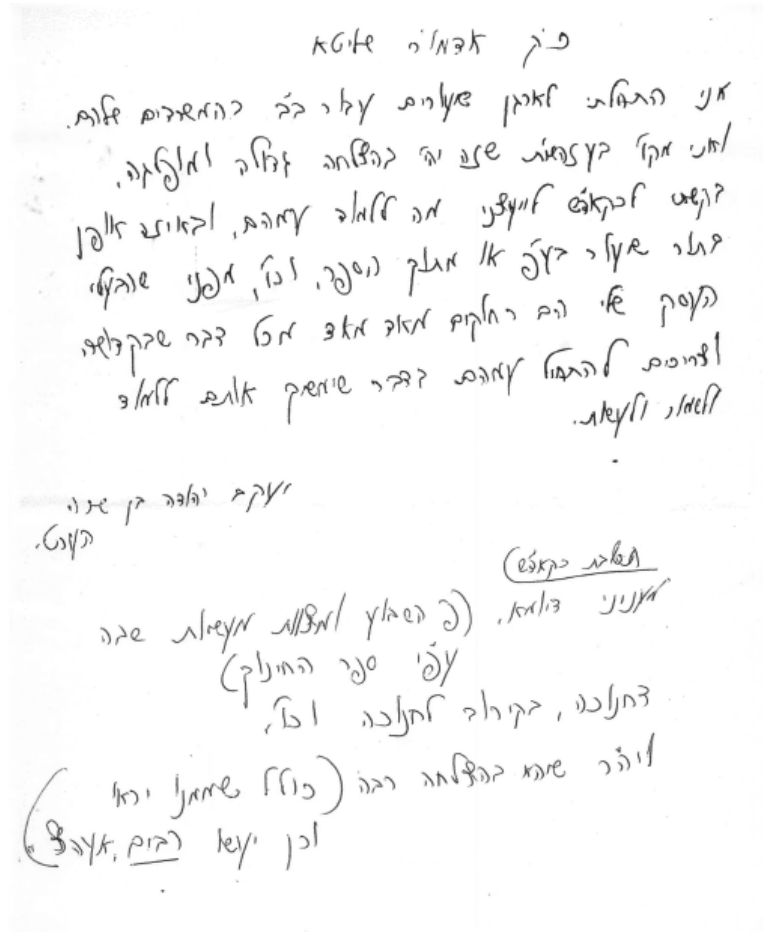 כ"ק אדמו"ר שליטא
אני התחלתי לארגן שעורים עבור בע"ב בהמשרדים שלהם.
ואני מקוה בעזהשי"ת שזה יהי' בהצלחה גדולה ומופלגה,
בקשתי לכקאד"ש לייעצני מה ללמוד עמהם, ובאיזה אופן
בתור שעור בע"פ או מתוך הספר, וכו', מפני שהבעלי
העסק שלי הם רחוקים מאד מאד מכל דבר שבקדושה
וצריכים להתחיל עמהם בדבר שימשוך אותם ללמוד
לשמור ולעשות.
יעקב יהודה בן שרה
העכט.
תשובת כקאד"ש)
מעניני דיומא, (פ' השבוע ומצוות מעשיות שבה
עפ"י ספר החינוך)
דחנוכה, בקירוב לחנוכה וכו',
ויה"ר שיהא בהצלחה רבה (כולל שממנו יראו
וכן יעשו רבים, אזכיר עה"צ.)